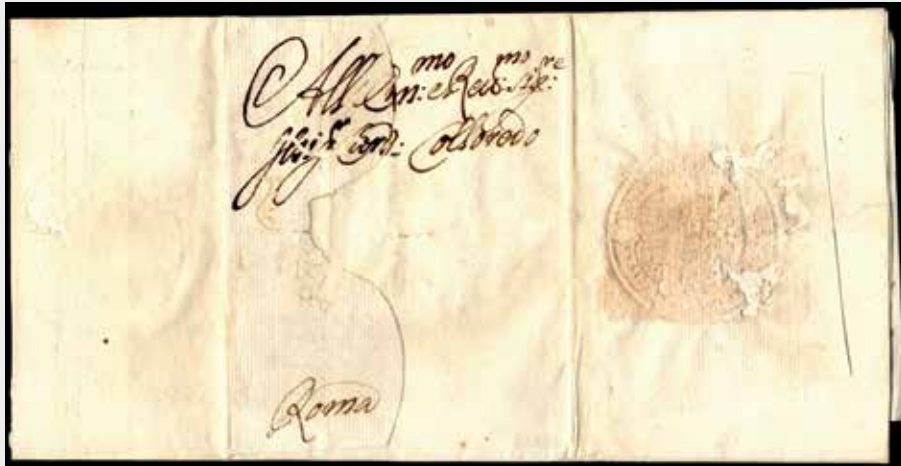 All' Em:mo e Rev:mo Sig:re
Card: Colloredo
Roma